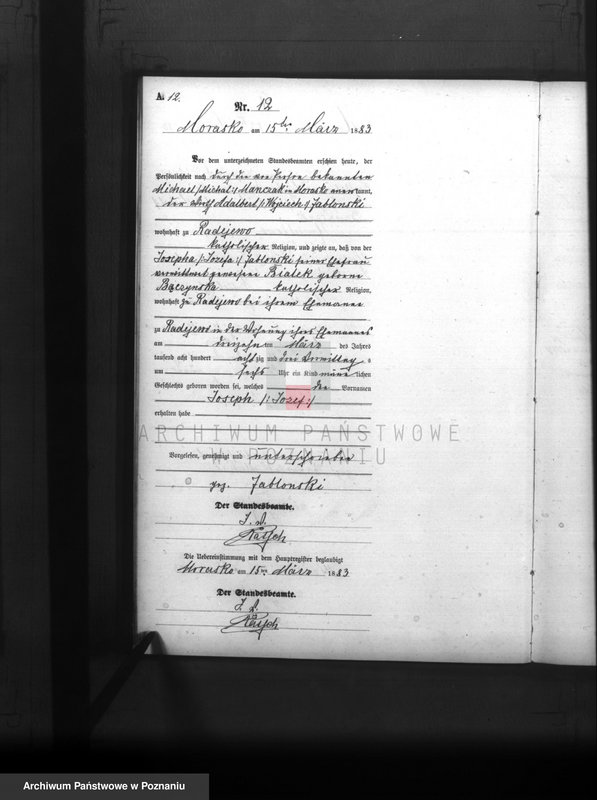 A. 12.
Nr. 12
Morasko am 15ten März 1883
Vor dem unterzeichneten Standesbeamten erschien heute, der
Persönlichkeit nach durch die von Person bekannten
Michael /:Michał:/ Manczak in Morasko anerkannt,
der Adalbert /:Wojciech:/ Jablonski
wohnhaft zu Radojewo
katholischer Religion, und zeigte an, daß von der
Josepha /:Jozefa:/ Jablonski seiner Ehefrau
verwittwet gewesene Bialek geborne
Bączynska katholischer Religion,
wohnhaft zu Radojewo bei ihrem Ehemanne
zu Radojewo in der Wohnung ihres Ehemannes
am dreizehn ten März des Jahres
tausend acht hundert achtzig und drei Vormittags
um sechs Uhr ein Kind männlichen
Geschlechts geboren worden sei, welches die Vornamen
Joseph /:Jozef:/
erhalten habe
ARCHIWUM PAŃSTWOWE
W POZNANIU
Vorgelesen, genehmigt und unterschrieben
gez. Jablonski
Der Standesbeamte.
J. V.
Die Uebereinstimmung mit dem Hauptregister beglaubigt
Morasko am 15ten März 1883
Der Standesbeamte.
J. V.
Archiwum Państwowe w Poznaniu